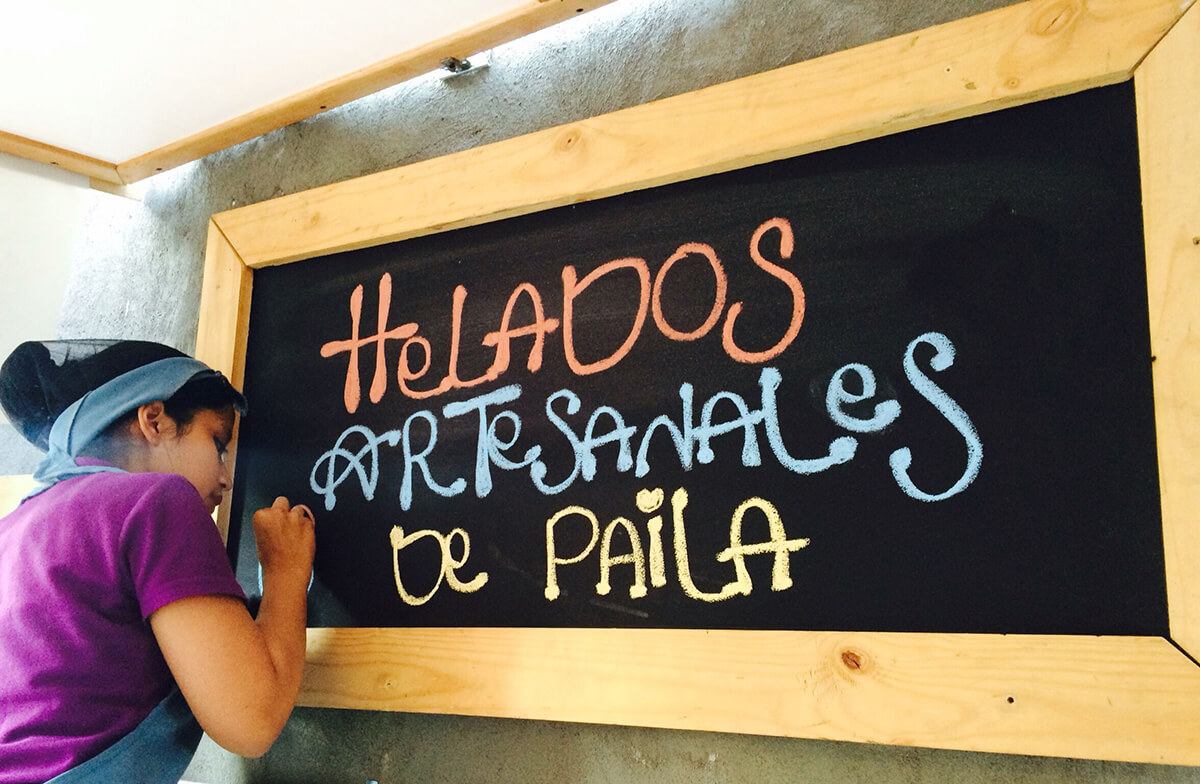 HeLADOS
ARTeSANALeS
De PAiLA